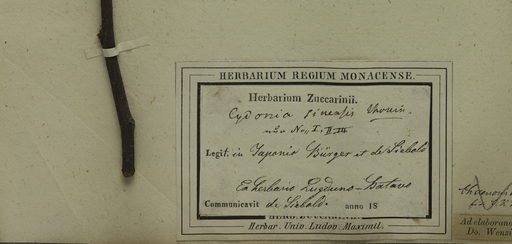 HERBARIUM REGIUM MONACENSE.
Herbarium Zuccarinii.
Cydonia sinensis Thouin.
No. I. II. III
Legit. in Japonia Bürger et de Siebold
Ex herbario Lugduno-Batavo
Communicavit de Siebold. anno 18
HERB. ZUCCARINII
Herbar. Univ. Ludov. Maximil.
Ad elaboran
Do. Wenzi